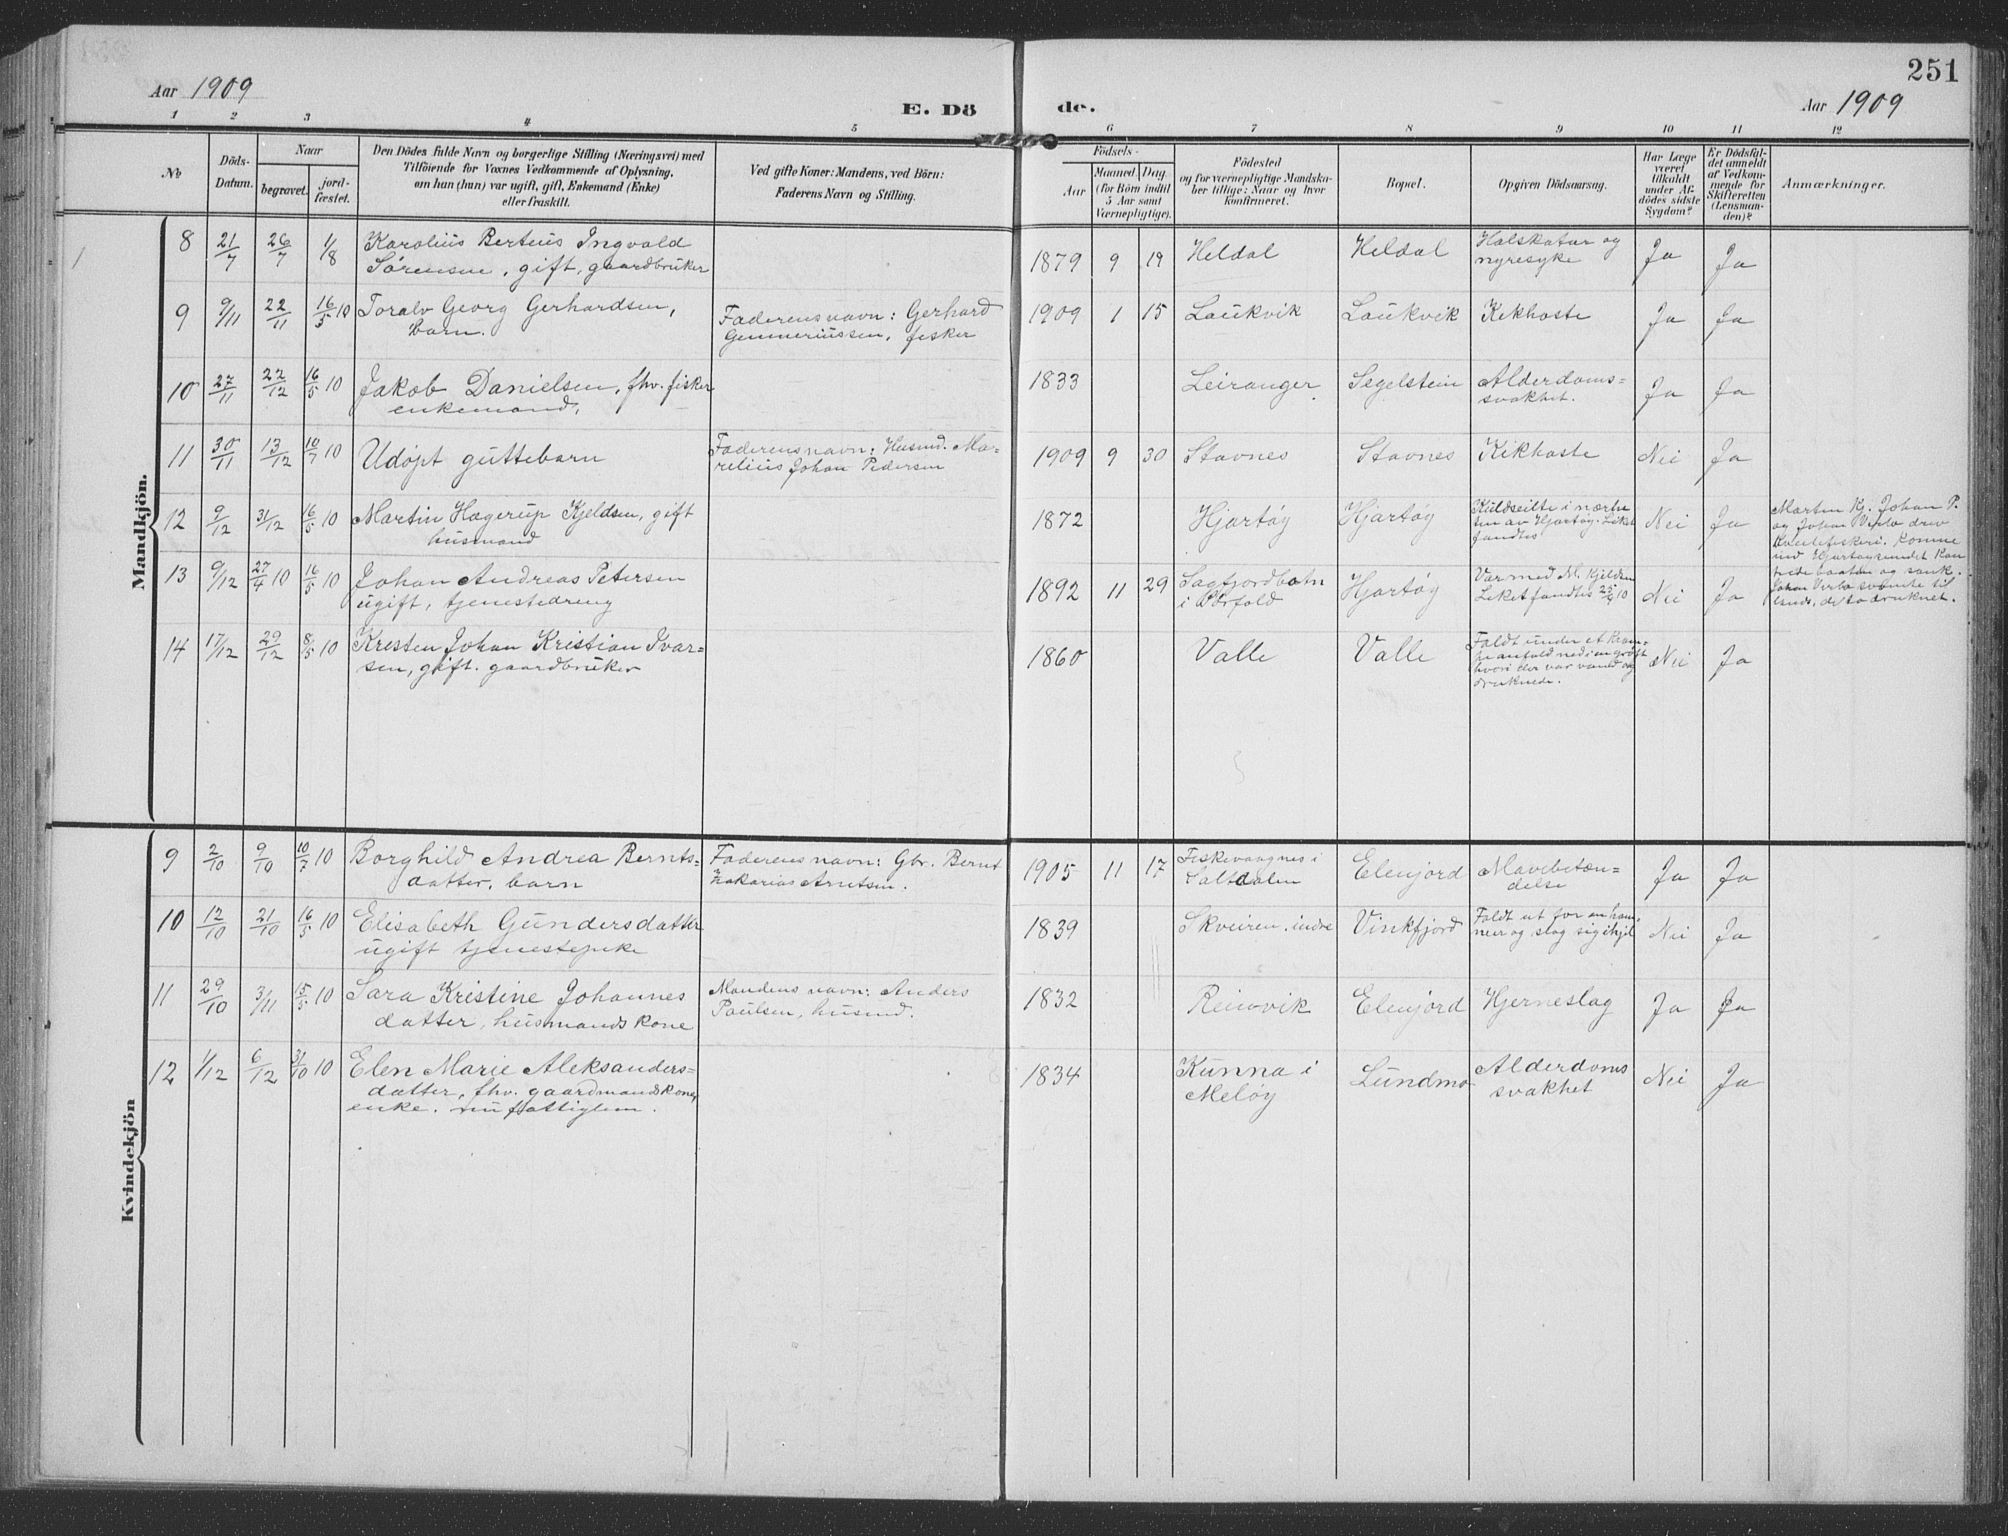 251
Aar 1909
E. Dö
de.
Aar 1909
1 2 3 4 5 6 7 8 9 10 11 12
No
Döds-
Datum.
Naar
begravet.
jord-
fæstet.
Den Dödes fulde Navn og borgerlige Stilling (Næringsvei) med
Tilföiende for Voxnes Vedkommende af Oplysning,
om han (hun) var ugift, gift, Enkemand (Enke)
eller fraskilt.
Ved gifte Koner: Mandens, ved Börn:
Faderens Navn og Stilling.
Födsels-
Aar
Maaned. Dag.
(for Börn indtil
5 Aar samt
Værnepligtige).
Födested
og for værnepligtige Mandska-
ber tillige: Naar og hvor
konfirmeret.
Bopæl.
Opgiven Dödsaarsag.
Har Læge
været
tilkaldt
under Af-
dödes sidste
Sygdom?
Er Dödsfal-
det anmeldt
af Vedkom-
mende for
Skifteretten
(Lensman-
den)?
Anmærkninger.
Mandkjön.
8 21/7 26/7 1/8 Karolius Berteus Ingvald
Sørensen, gift, gaardbruker
1879 9 19 Heldal Heldal Halskatar og
nyresyke Ja Ja
9 9/11 22/11 16/5 10 Toralv Georg Gerhardsen,
barn.
Faderens navn: Gerhard
Gunneriussen, fisker
1909 1 15 Laukvik Laukvik Kikhoste Ja Ja
10 27/11 22/12 16/5 10 Jakob Danielsen, fhv. fisker
enkemand,
1833 Leiranger Segelstein Alderdoms=
svakhet. Ja Ja
11 30/11 13/12 10/7 10 Udøpt guttebarn
Faderens navn: Husmd. Ma-
relius Johan Pedersen
1909 9 30 Stavnes Stavnes Kikhoste Nei Ja
12 9/12 31/12 16/5 10 Martin Hagerup Kjeldsen, gift
husmand
1872 Hjartøy Hjartøy Kuldseilte i nærhe
ten av Hjartøy. Liket
fandtes Nei Ja
Marten Kj. Johan P.
og Johan Verlo drev
Kveitefiskeri.
13 9/12 27/4 10 16/5 10 Johan Andreas Petersen
ugift, tjenestedreng
1892 11 29 Sagfjordbotn
i Nørfold Hjartøy Var med M. Kjeldsen
Liket fandtes 25/4 10 Nei Ja
baaten og sank.
Johan Verlo svømte til
lands, de to druknet.
14 17/12 29/12 8/5 10 Kresten Johan Kristian Ivar-
sen, gift. gaardbruker
1860 Valle Valle Faldt under et kram-
peanfald ned i en grøft
hvori der var vand og
druknede. Nei Ja
Kvindekjön
9 2/10 9/10 10/7 10 Borghild Andrea Bernts=
datter, barn
Faderens navn: Gbr. Bernt
Zakarias Arntsen.
1905 11 17 Fiskevaagnes i
Saltdalen Elenjord Mavebetæn=
delse Ja Ja
10 12/10 21/10 16/5 10 Elisabeth Gundersdatter
ugift tjenestepike
1839 Skveiren. indre Vinkfjord Faldt ut for en ham-
mer og slog sig ihjel Nei Ja
11 29/10 3/11 15/5 10 Sara Kristine Johannes
datter, husmandskone
Mandens navn: Anders
Paulsen, husmd.
1832 Reinvik Elenjord Hjerneslag Ja Ja
12 1/12 6/12 31/10 10 Elen Marie Aleksanders=
datter, fhv. gaardmandskone,
enke. nu fattiglem.
1834 Kunna i
Meløy Lundmo Alderdoms
svakhet Nei Ja